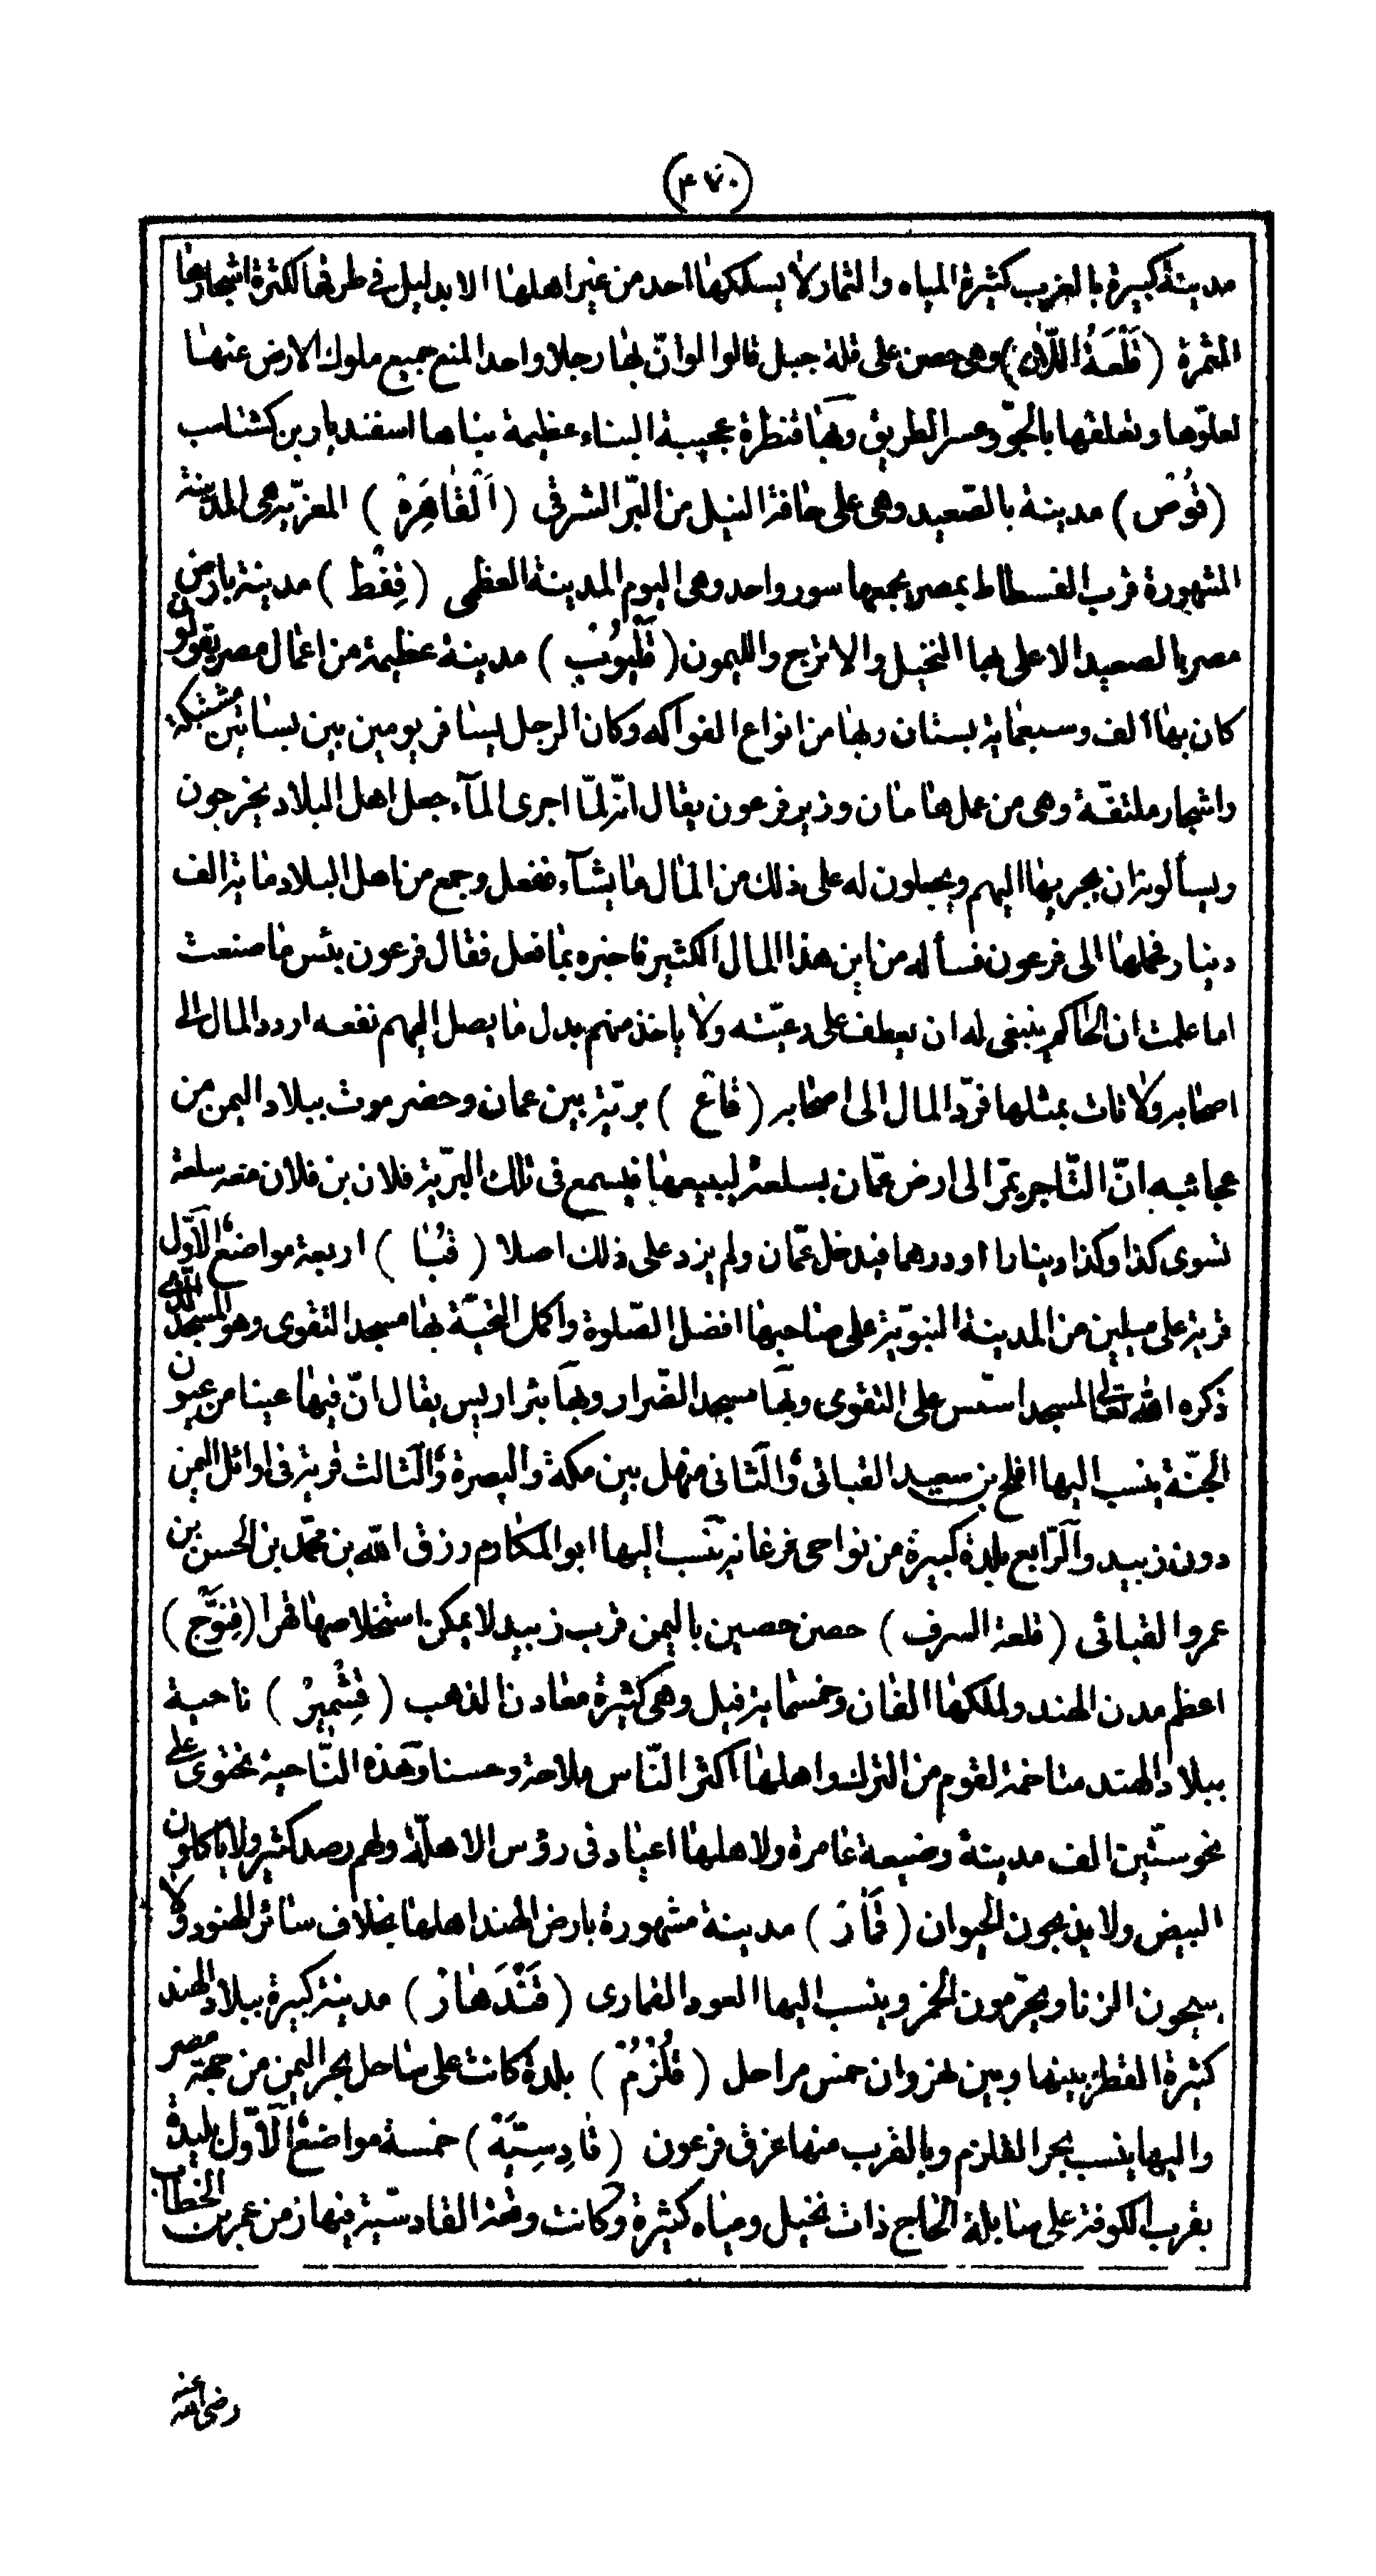 (٤٧٠)
مدينة كبيرة بالغرب كثيرة المياه والثمار لا يسلكها احد من غير اهلها الا بدليل في طرقها لكثرة اشجارها
المثمرة (قَلْعَةُ اللّان) وهى حصن على قلة جبل قالوا لو انّ بها رجلا واحدا لمنع جميع ملوك الارض عنها
لعلوّها وتعلقها بالجوّ وعسر الطريق وبها قنطرة عجيبة البناء عظيمة بناها اسفنديار بن كشتاسب
(قُوُصْ) مدينة بالصعيد وهى على حافة النيل من البّر الشرقى (اَلْقَاهِرَهْ) المعزيّة هى المدينة
المشهورة قرب الفسطاط بمصر يجمعها سور واحد وهى اليوم المدينة العظمى (قِفْطْ) مدينة بارض
مصر بالصعيد الاعلى بها النخيل والاترج والليمون (قَلْيُوُبْ) مدينة عظيمة من اعمال مصر يقولون
كان بها الف وسبعماية بستان وبها من انواع الفواكه وكان الرجل يسافر يومين بين بساتين مشتبكة
واشجار ملتفّة وهى من عمل هامان وزير فرعون يقال انّه لمّا اجرى المآء جعل اهل البلاد يخرجون
ويسألونه ان يجريها اليهم ويجعلون له على ذلك من المال ما يشآء ففعل وجمع من اهل البلاد ماية الف
دينار فحملها الى فرعون فسأله من اين هذا المال الكثير فاخبره بما فعل فقال فرعون بئس ما صنعت
اما علمت ان الحاكم ينبغى له ان يعطف على رعيّته ولا ياخذ منهم بدل ما يصل اليهم نفعه اردد المال الى
اصحابه ولا تات بمثلها فردّ المال الى اصحابه (قاعْ) بريّة بين عمان وحضرموت ببلاد اليمن من
عجائبه انّ التّاجر يمّر الى ارض عمّان بسلعة ليبيعها فيسمع فى تلك البرّية فلان بن فلان معه سلعة
تسوى كذا وكذا دينارا او درهما فيدخل عمّان ولم يزد على ذلك اصلا (قُبَا) اربعة مواضع الاوّل
قرية على ميلين من المدينة النبويّة على صاحبها افضل الصّلوة واكمل التحيّة بها مسجد التقوى وهو المسجد الّذى
ذكره الله تعالى لمسجد اسّس على التقوى وبها مسجد الضّرار وبها بئر اريس يقال انّ فيها عينا من عيون
الجنّة ينسب اليها افلح بن سعيد القبائى والثانى منهل بين مكة والبصرة والثالث قرية فى اوائل اليمن
دون زبيد والرّابع بلدة كبيرة من نواحى فرغانه ينسب اليها ابو المكارم رزق الله بن محمّد بن الحسن بن
عمرو القبائى (قلعة السرف) حصن حصين باليمن قرب زبيد لا يمكن استخلاصها قهرا (قِنَوَّجْ)
اعظم مدن الهند ولملكها الفان وخمسماية فيل وهى كثيرة معادن الذهب (قِشْمِيرْ) ناحية
ببلاد الهند متاخمة لقوم من الترك واهلها اكثر النّاس ملاحة وحسنا وهذه النّاحية تحتوى على
نحو ستّين الف مدينة وضيعة عامرة ولاهلها اعياد فى رؤس الاهلّة ولهم رصد كثير ولا ياكلون
البيض ولا يذبحون الحيوان (قَمَارْ) مدينة مشهورة بارض الهند اهلها بخلاف سائر الهنود ولا
يبيحون الزنا ويحرّمون الخمر وينسب اليها العود القمارى (قَنْدَهَارْ) مدينة كبيرة ببلاد الهند
كثيرة القطر بينها وبين لهزوان خمس مراحل (قُلْزُمْ) بلدة كانت على ساحل بحر اليمن من جهة مصر
واليها ينسب بحر القلزم وبالقرب منها غرق فرعون (قَادِسِيَّهْ) خمسة مواضع الاوّل بليدة
بقرب الكوفة على سابلة الحاج ذات نخيل ومياه كثيرة وكانت وقعة القادسّية فيها زمن عمر بن الخطاب
رضى الله عنه